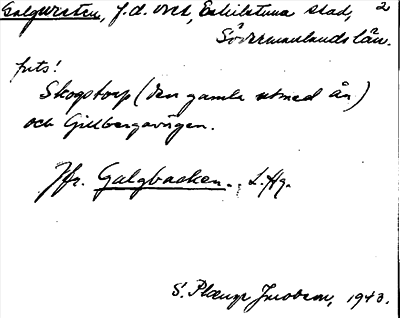 Galgvreten, f.d. vret, Eskilstuna stad, 2
Södermanlands län.
forts!
Skogstorp (den gamla utmed ån)
och Gillbergavägen.
Jfr. Galgbacken.
S. Jacobson, 1943.